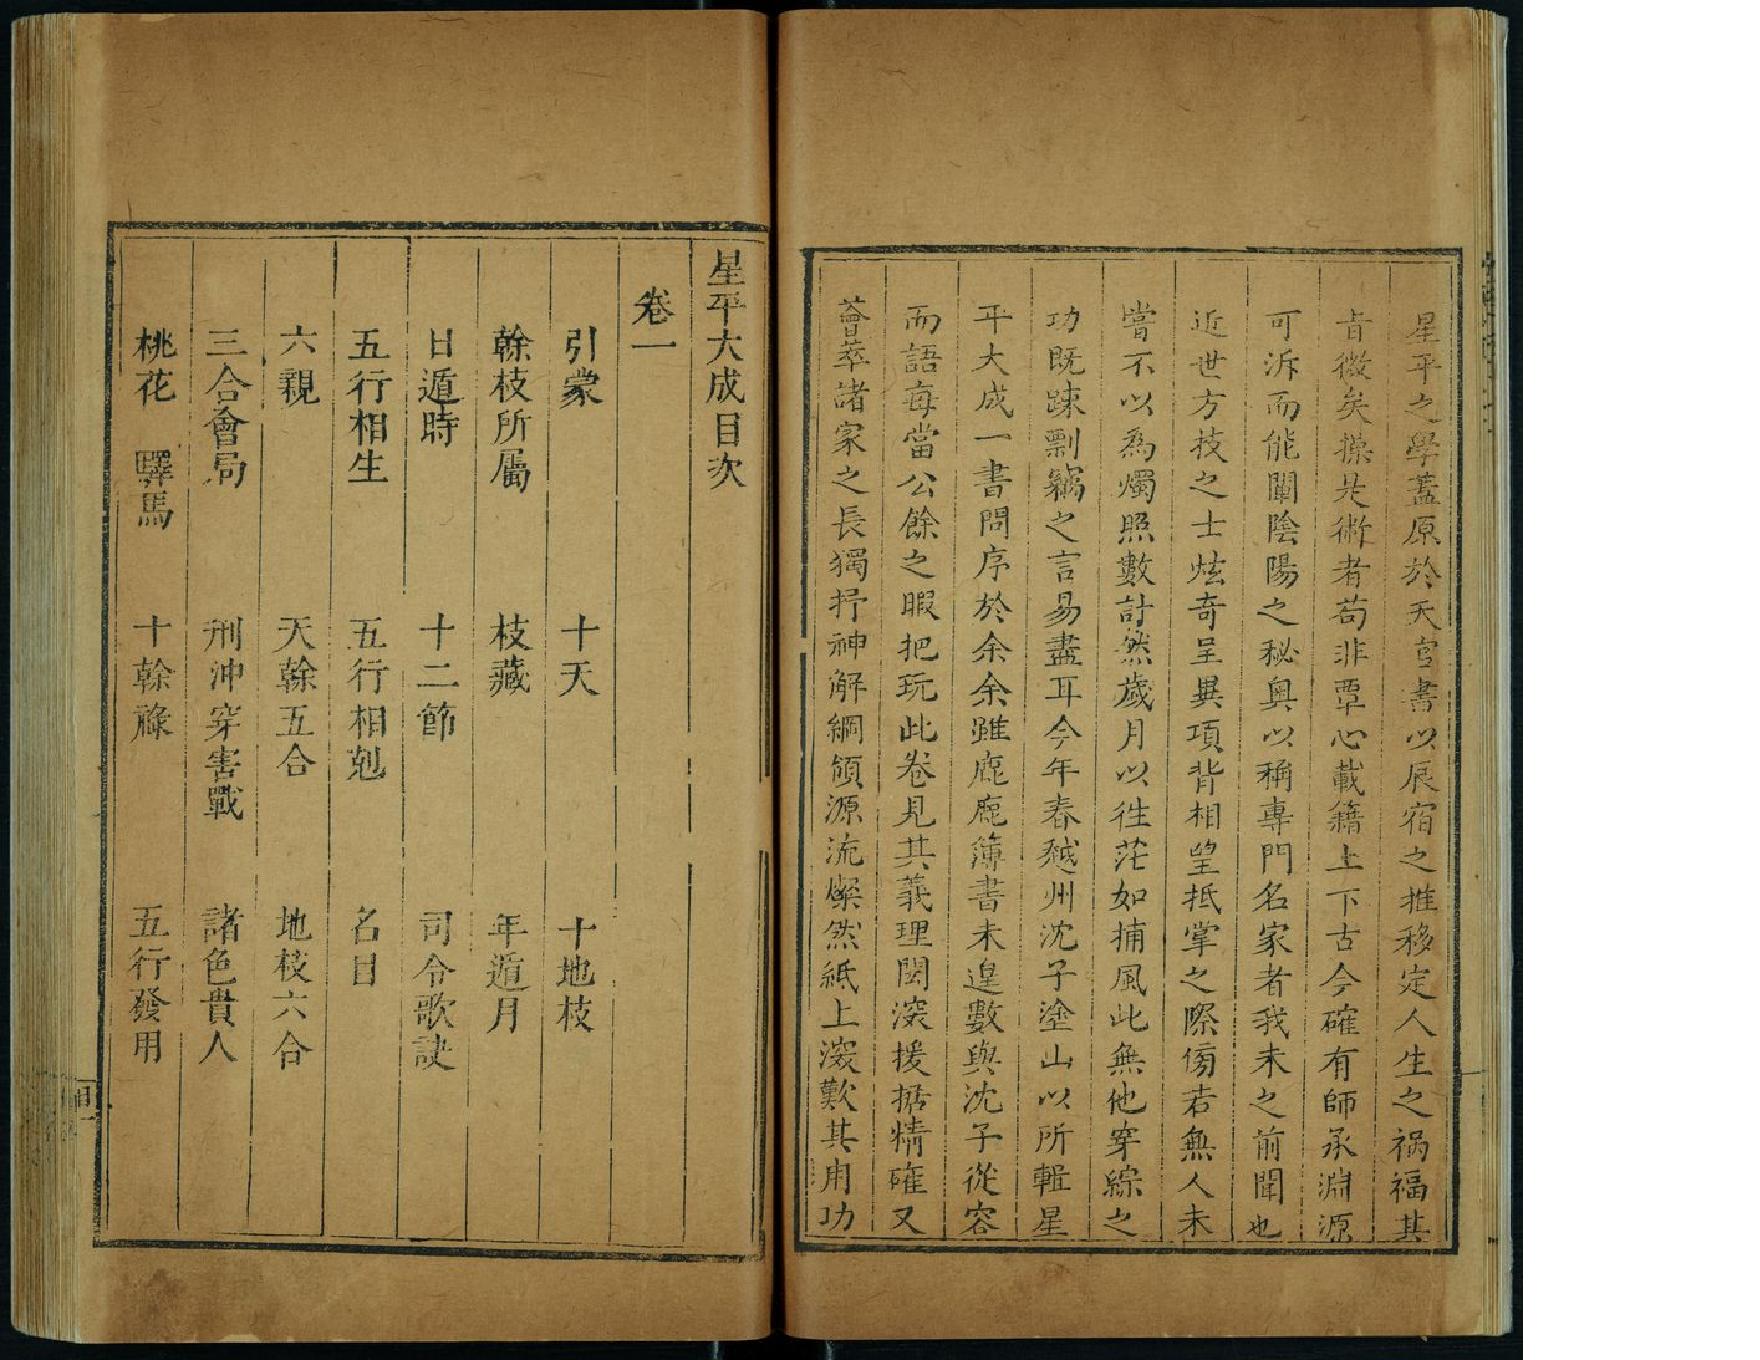 星平之學蓋原於天官書以辰宿之推移定人生之禍福其
旨微矣操是術者苟非覃心載籍上下古今確有師承淵源
可泝而能闡陰陽之秘奧以稱專門名家者我未之前聞也
近世方技之士炫奇呈異項背相望抵掌之際傍若無人未
嘗不以為燭照數計然歲月以往茫如捕風此無他穿綜之
功既踈剽竊之言易盡耳今年春越州沈子塗山以所輯星
平大成一書問序於余余雖鹿鹿簿書未遑數與沈子從容
而語每當公餘之暇把玩此卷見其義理閎深援據精確又
薈萃諸家之長獨抒神解綱領源流燦然紙上深歎其用功
星平大成目次
卷一
引蒙 十天 十地枝
榦枝所屬 枝藏 年遁月
日遁時 十二節 司令歌訣
五行相生 五行相剋 名目
六親 天榦五合 地枝六合
三合會局 刑沖穿害戰 諸色貴人
桃花 驛馬 十榦祿 五行發用
目一